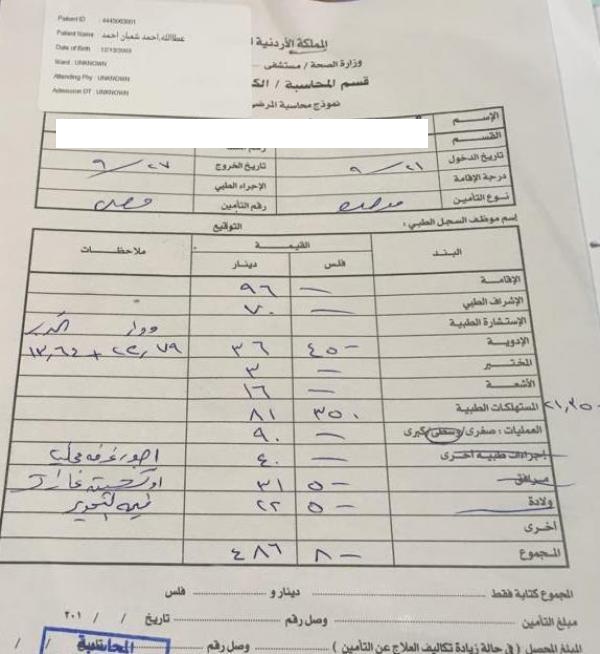 Patient ID : 4445063001
Patient Name : عطاالله,احمد شعبان احمد
Date of Birth : 12/13/2003
Ward : UNKNOWN
Attending Phy : UNKNOWN
Admission DT : UNKNOWN
المملكة الأردنية
وزارة الصحة / مستشفى
قسم المحاسبة /
نموذج محاسبة المرضى
الإســم
القسم
تاريخ الدخول ٢١ / ٩ تاريخ الخروج ٢٧ / ٩
درجة الإقامة الإجراء الطبي
نـوع التأمين رقم التأمين
إسم موظف السجل الطبي : التوقيع
البند القيمة ملاحظات
فلس دينار
الإقامة — ٩٦
الإشراف الطبي — ٧٠
الإستشارة الطبية
الادويـة ٤٥٠ ٣٦ ٢٢,٧٩ + ١٣,٦٤
المختبر — ٣
الأشعة — ١٦
المستهلكات الطبية ٣٥٠ ٨١
العمليات : صغرى/وسطى/كبرى — ٩٠
إجراءات طبية أخرى — ٤٠ اجور غرفه
مرافق ٥٠ ٣١
ولادة ٥٠ ٢٢
أخرى
المجموع ٨٠ ٤٨٦
المجموع كتابة فقط دينار و فلس
مبلغ التأمين وصل رقم تاريخ / / ٢٠١
المبلغ المحصل ( في حالة زيادة تكاليف العلاج عن التأمين ) وصل رقم / /
المحاسبة